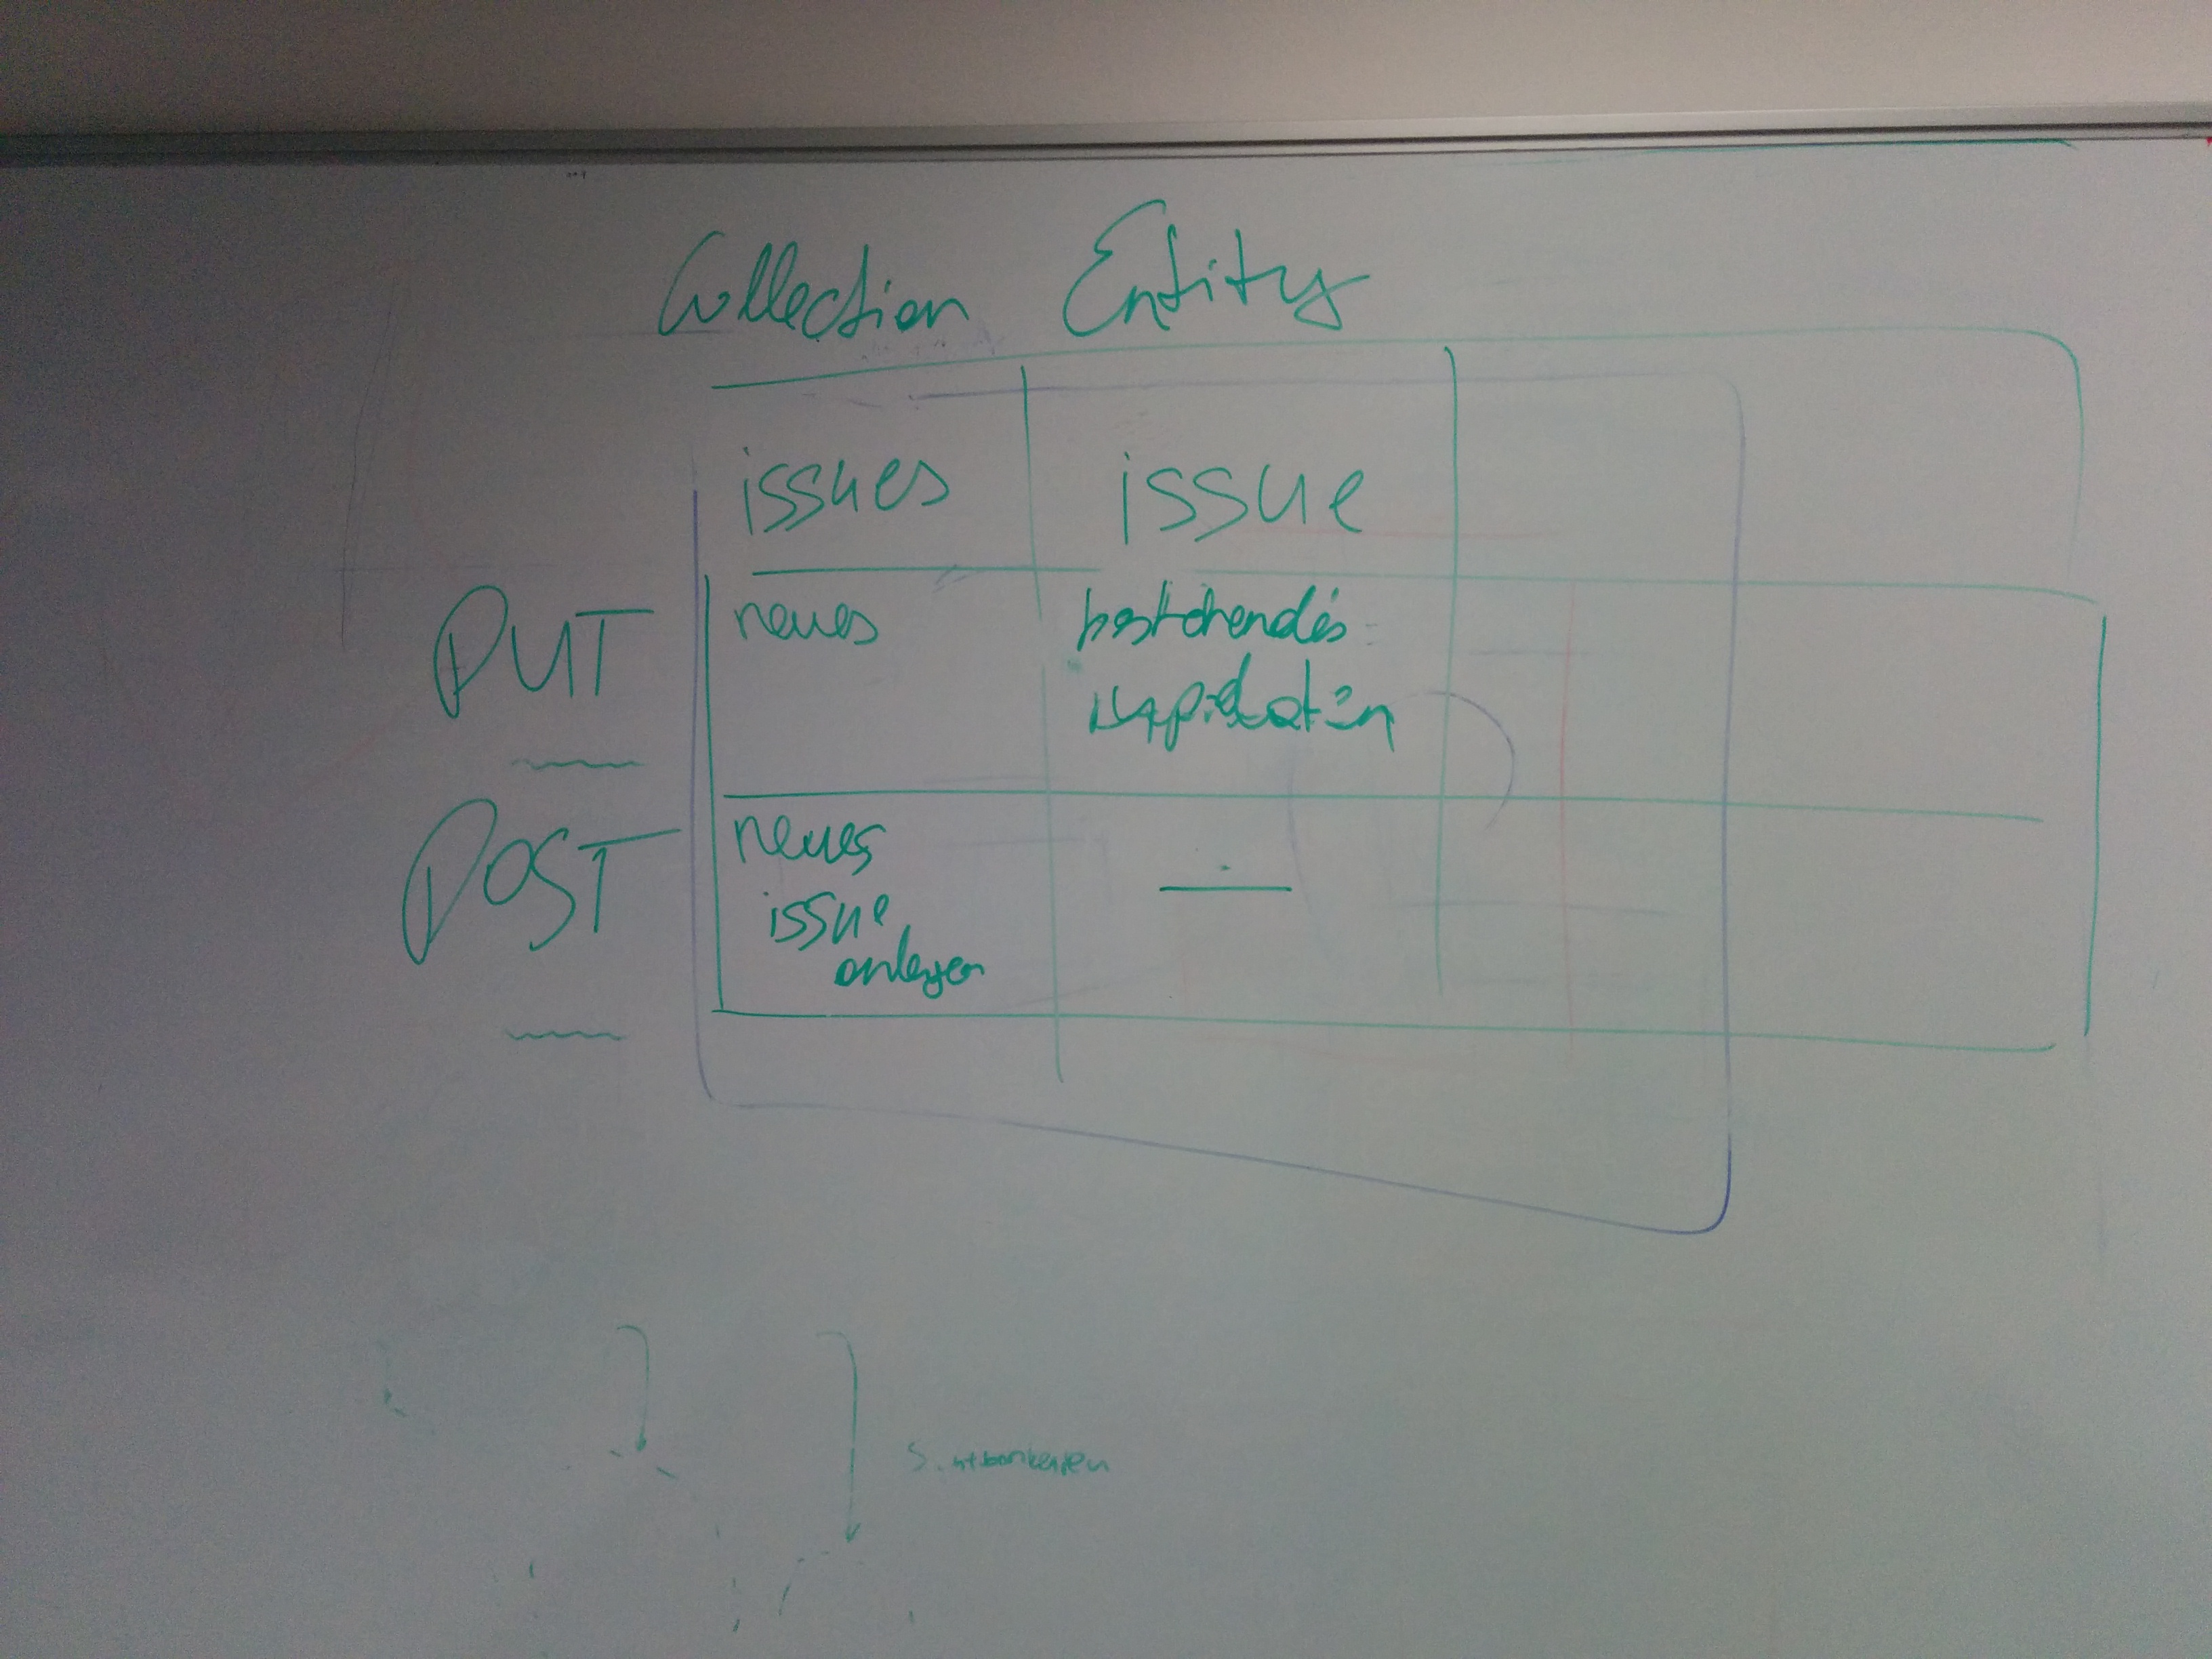 Collection Entity
issues issue
PUT neues bestehendes
updaten
POST neues
issue
anlegen